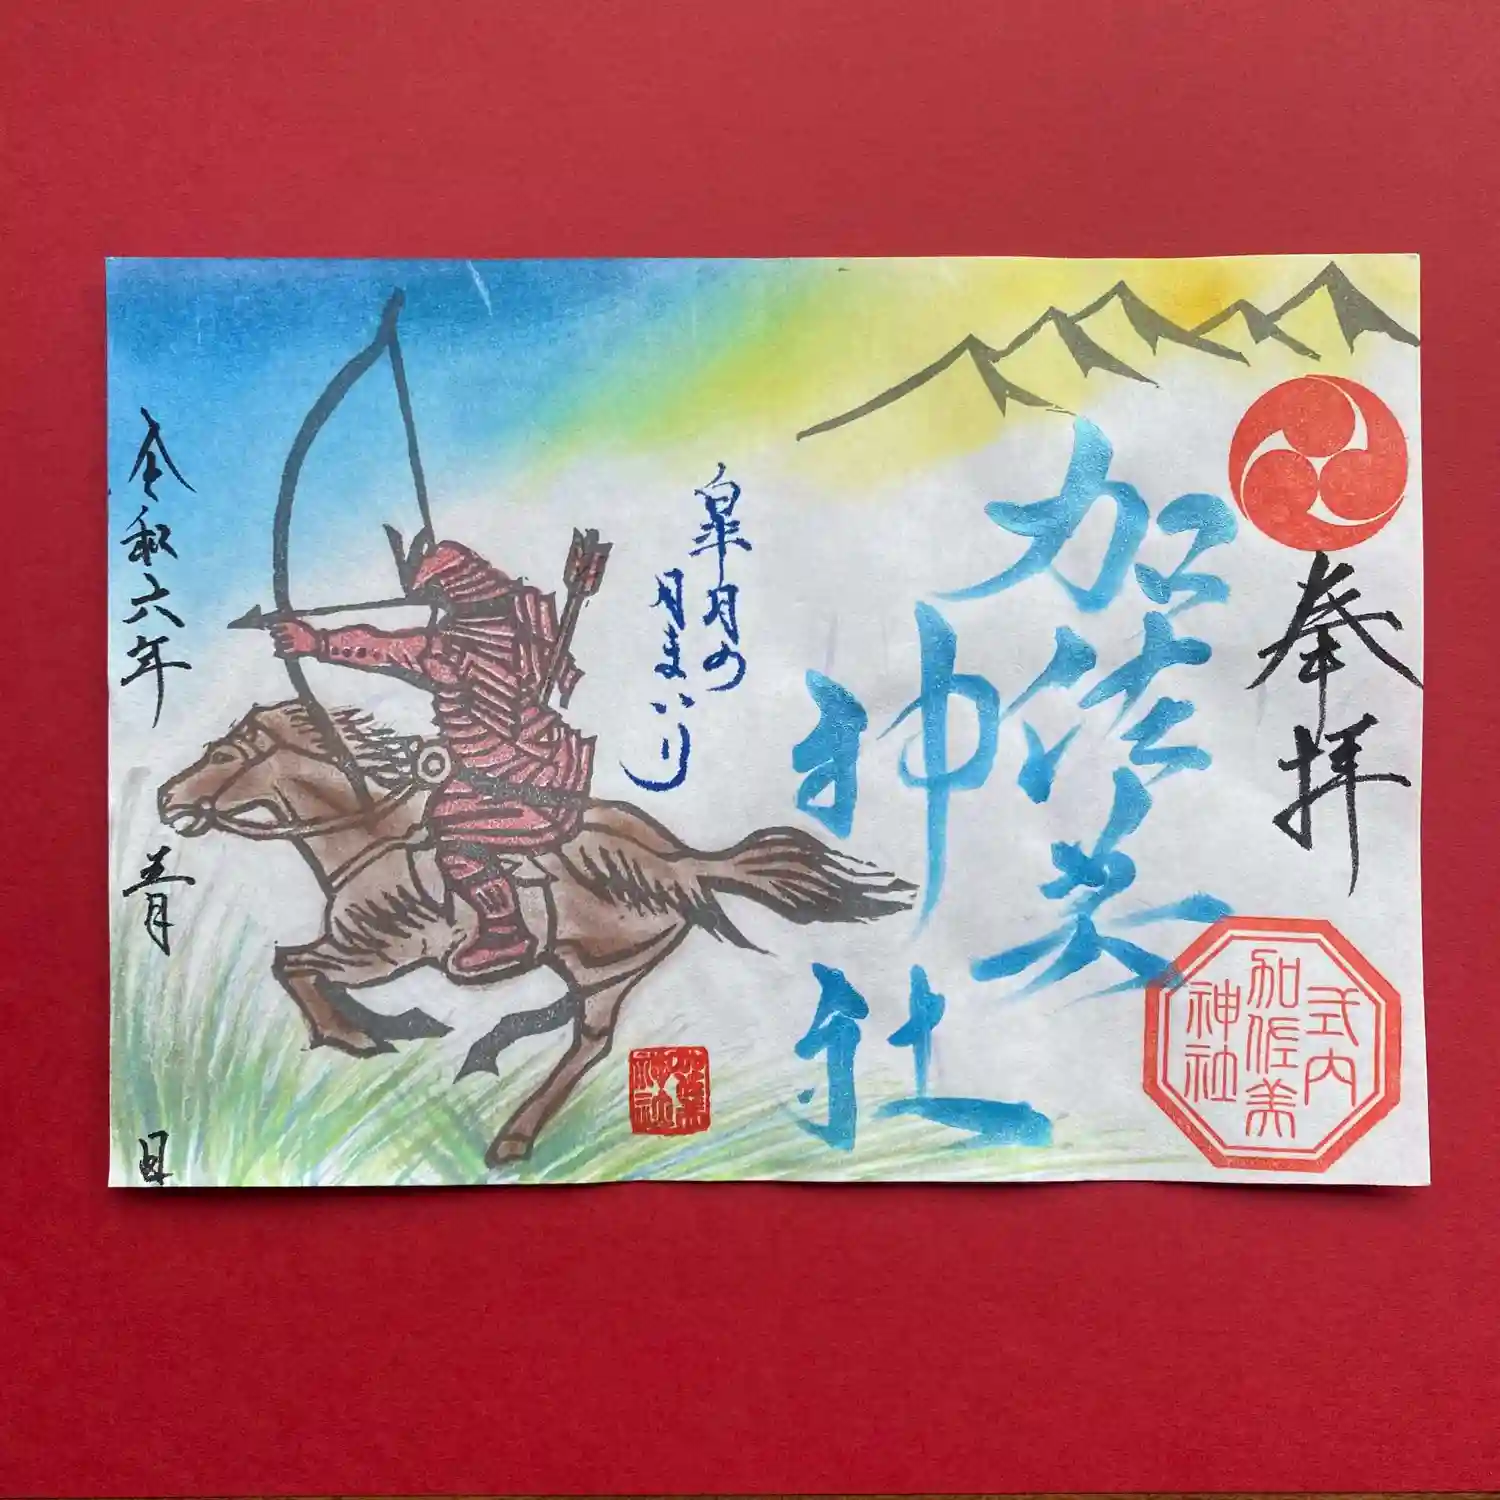 奉拝
加佐美
神社
式内
加佐美
神社
皐月の
月まいり
加佐美
神社
令和六年 五月 日